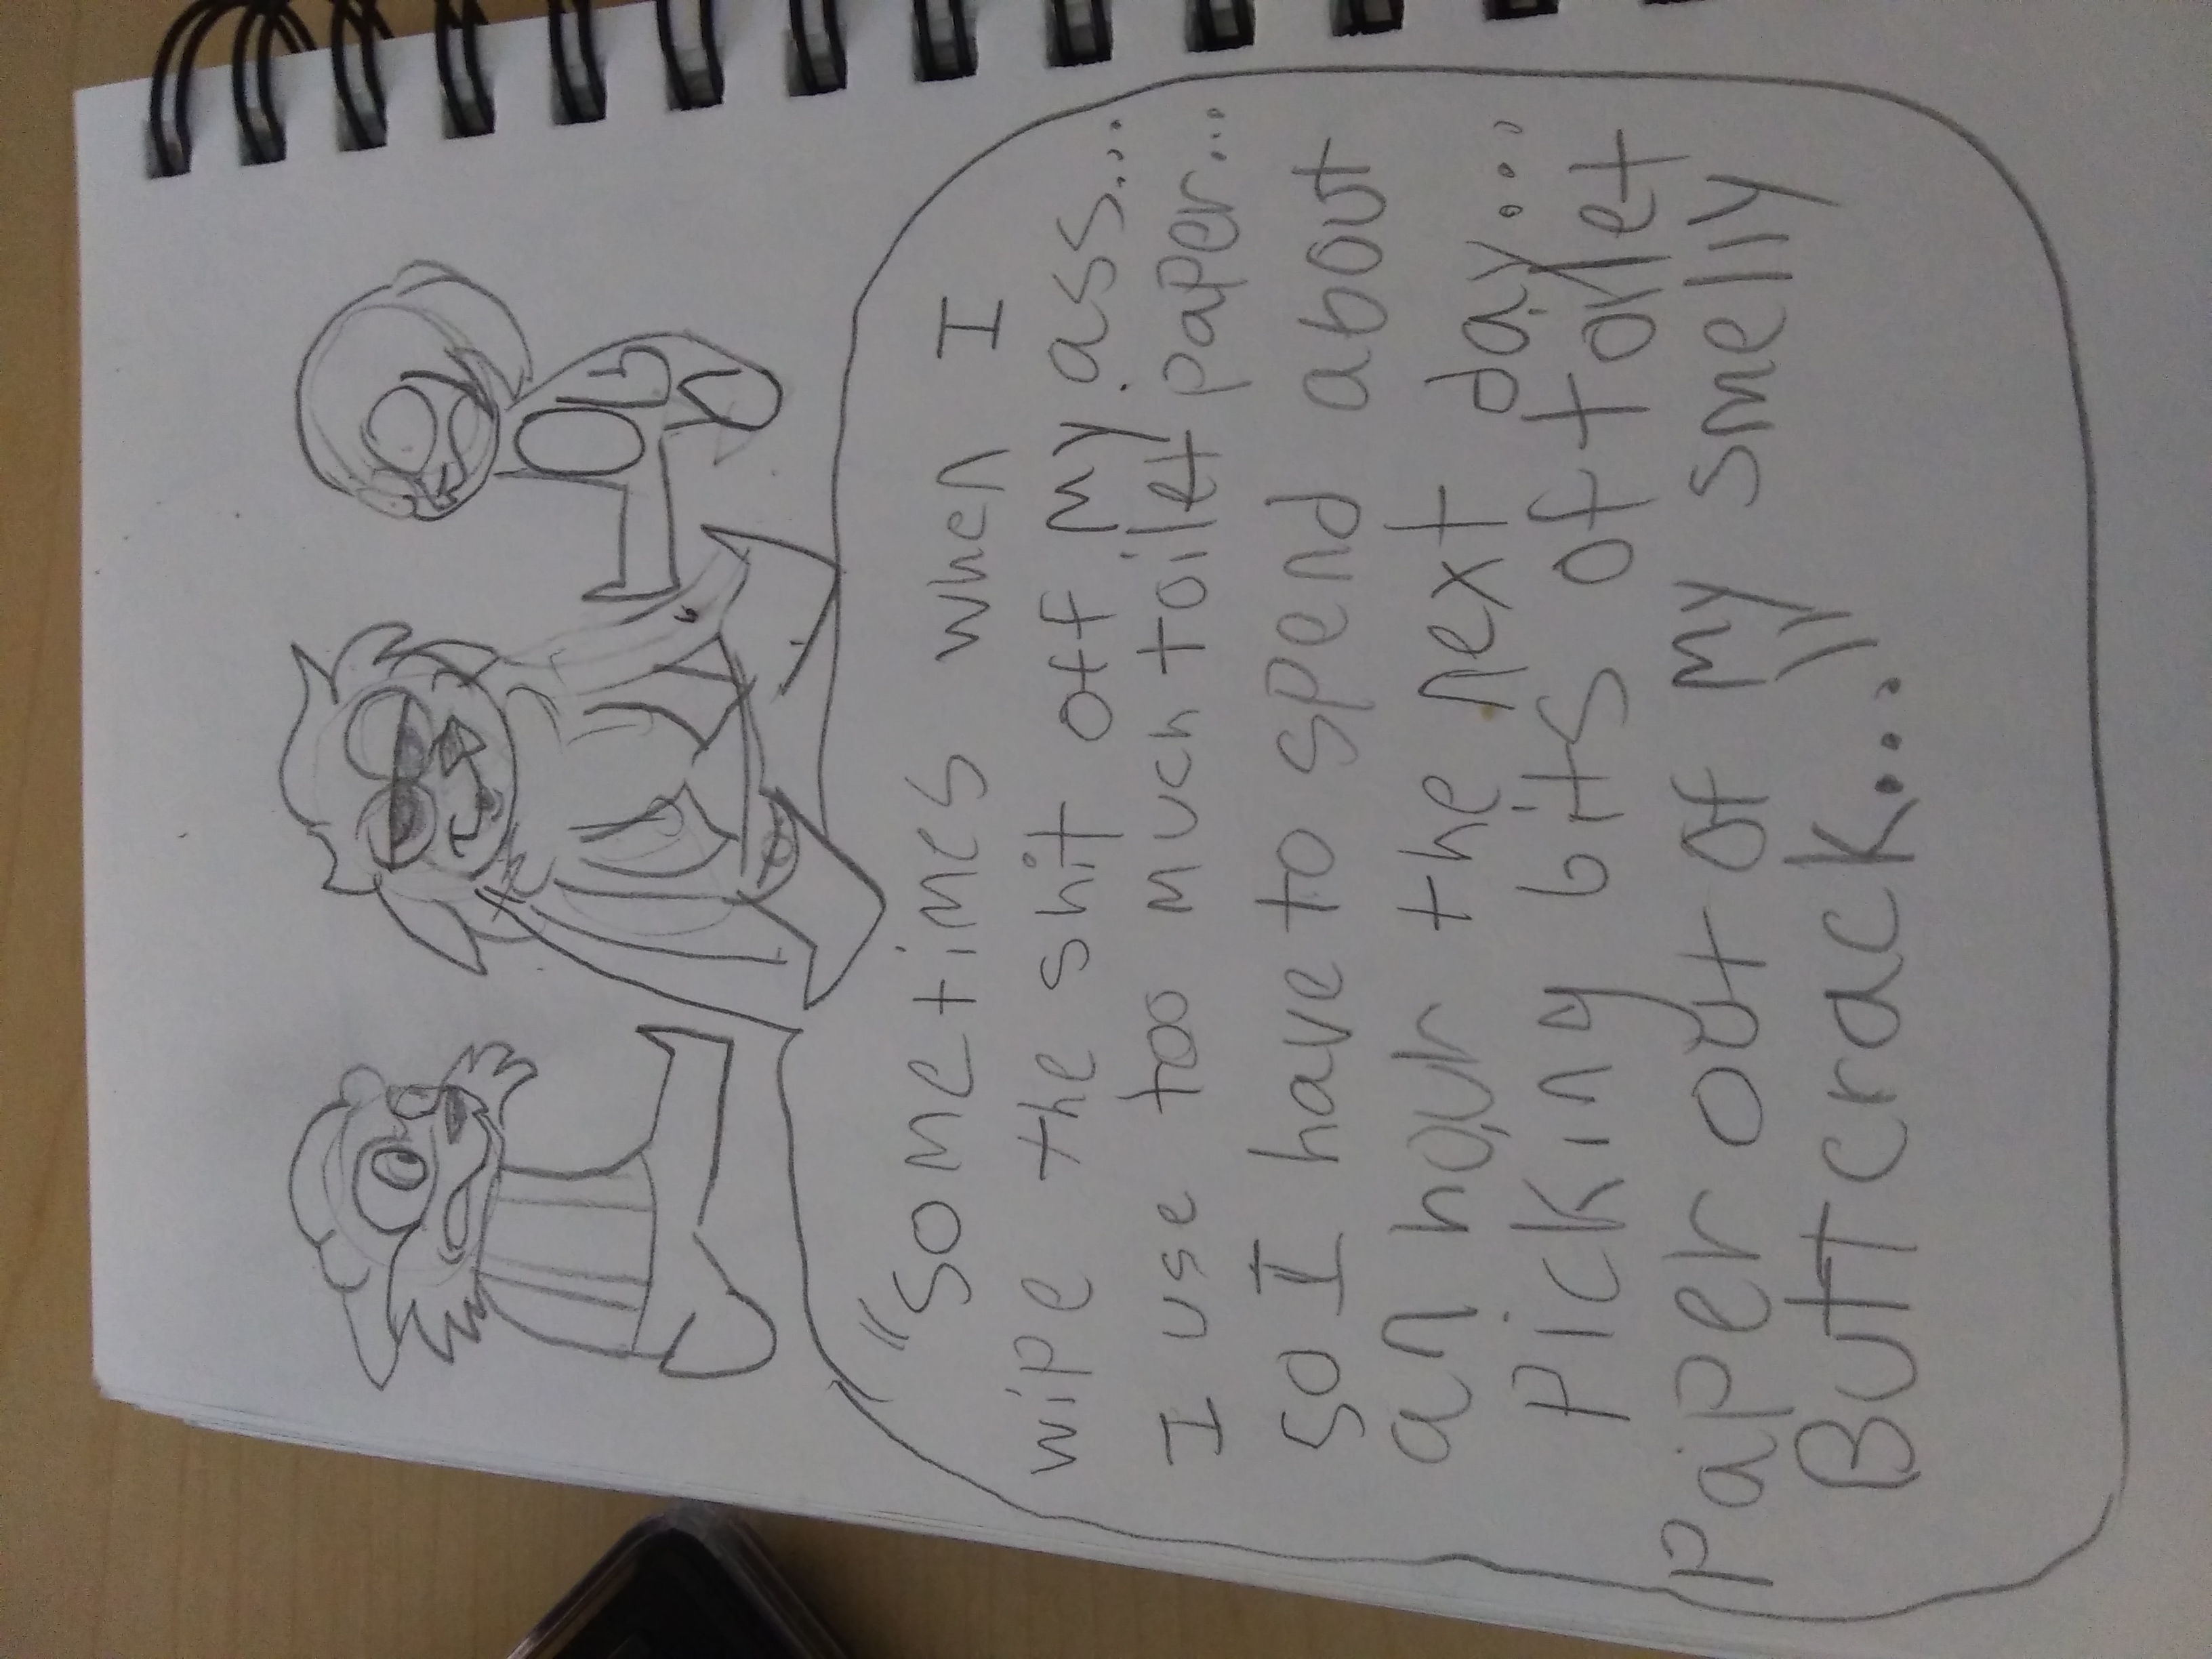 "Sometimes when I
wipe the shit off my ass....
I use too much toilet paper...
so I have to spend about
an hour the next day....
Picking bits of toilet
paper out of my smelly
Buttcrack...